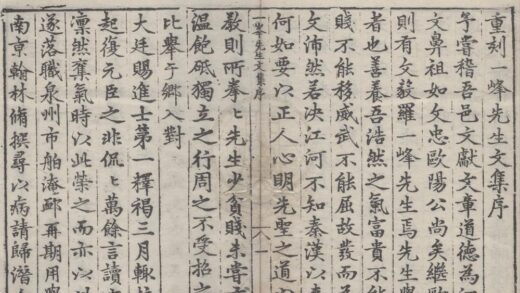 重刻一峰先生文集序
予嘗稽吾邑文獻文章道德為
文鼻祖如文忠歐陽公尚矣繼歐
則有文毅羅一峰先生焉先生學
者也善養吾浩然之氣富貴不能
賤不能移威武不能屈故發而
文沛然若决江河不知秦漢以
何如要以正人心明先聖之道
一峰先生文集序
教則所拳〻先生少貧賤未嘗
溫飽砥獨立之行周之不受招之
比舉于鄉入對
大廷賜進士第一釋褐三月輒
起復元臣之非侃〻萬餘言讀
凛然奪氣時以此榮之而亦以
遂落職泉州市舶淹郵再期用
南京翰林脩撰尋以病請歸潛